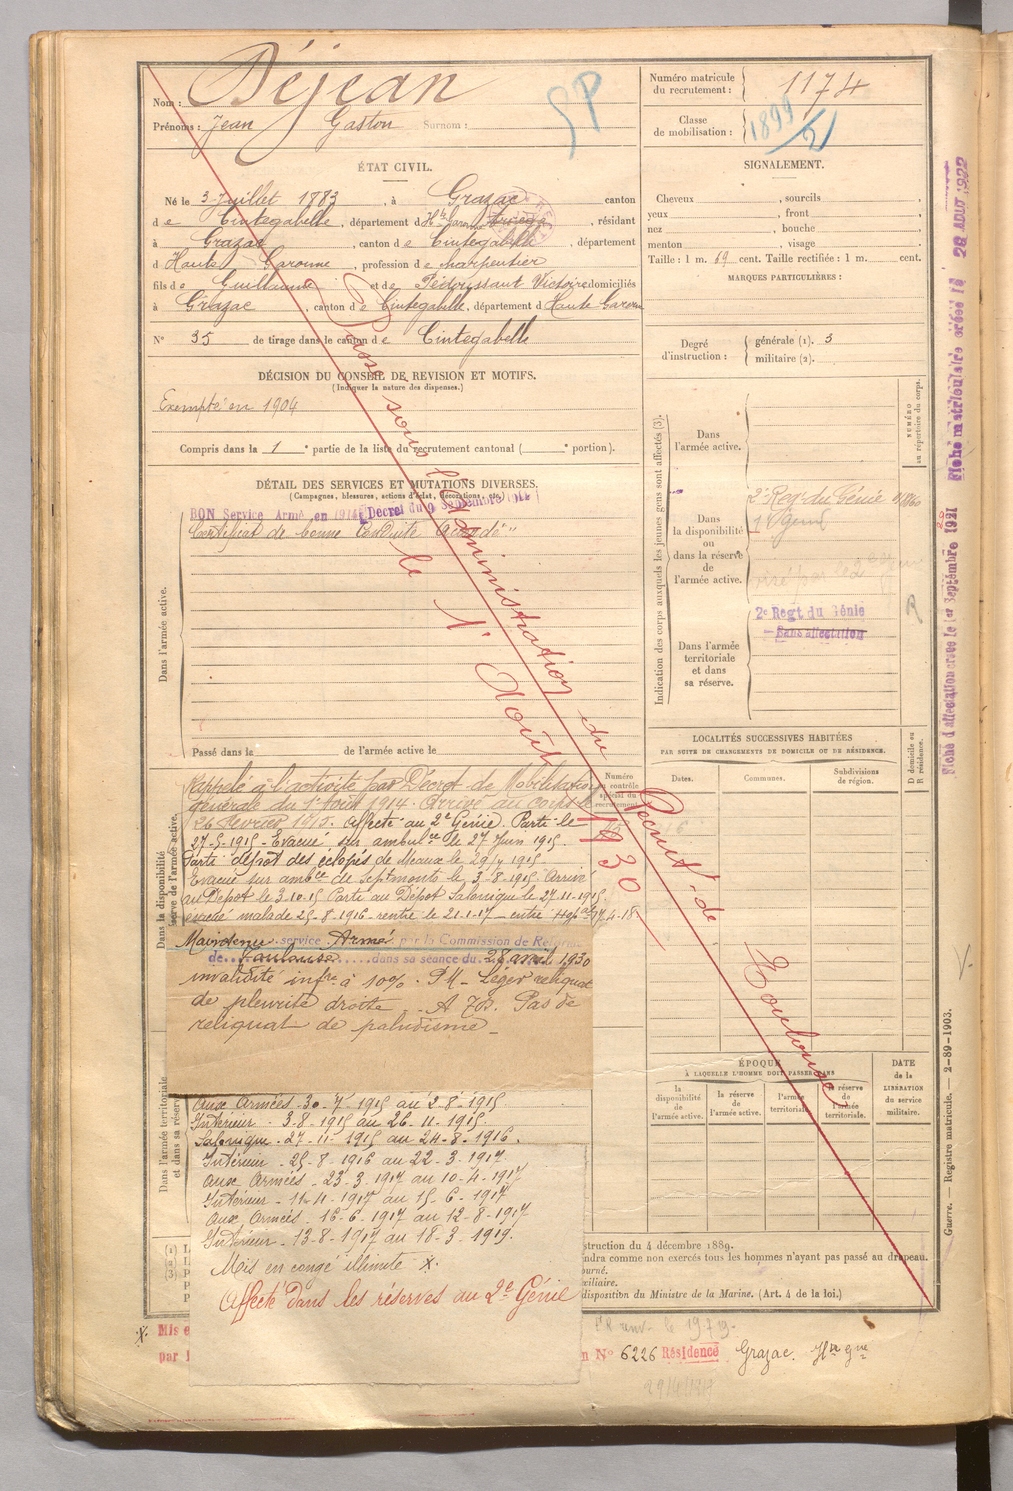 Nom : Déjean
Prénoms : Jean Gaston Surnom :
SP
Numéro matricule du recrutement : 1174
Classe de mobilisation : 1899
ÉTAT CIVIL.
Né le 3 Juillet 1883, à Grazac canton
de Cintegabelle, département d Hte Garonne Ariège, résidant
à Grazac, canton de Cintegabelle, département
d Haute Garonne, profession de charpentier
fils de Guillaume et de Pédoussaut Victoire domiciliés
à Grazac, canton de Cintegabelle, département d Haute Garonne
N° 35 de tirage dans le canton de Cintegabelle
SIGNALEMENT.
Cheveux , sourcils ,
yeux , front ,
nez , bouche ,
menton , visage
Taille : 1 m. 69 cent. Taille rectifiée : 1 m. cent.
MARQUES PARTICULIÈRES :
Degré d'instruction : générale (1). 3
militaire (2).
DÉCISION DU CONSEIL DE REVISION ET MOTIFS.
(Indiquer la nature des dispenses.)
Exempté en 1904
Compris dans la 1e partie de la liste du recrutement cantonal ( e portion).
DÉTAIL DES SERVICES ET MUTATIONS DIVERSES.
(Campagnes, blessures, actions d'éclat, décorations, etc.)
BON Service Armé en 1914 Décret du 9 Septembre 1914
Certificat de bonne Conduite "Accordé"
Dans l'armée active.
Passé dans la de l'armée active le
Indication des corps auxquels les jeunes gens sont affectés (3).
NUMÉRO au répertoire du corps.
Dans l'armée active.
Dans la disponibilité ou dans la réserve de l'armée active.
2e Regt du Génie
Dans l'armée territoriale et dans sa réserve.
2e Regt du Génie
Sans affectation
LOCALITÉS SUCCESSIVES HABITÉES
PAR SUITE DE CHANGEMENTS DE DOMICILE OU DE RÉSIDENCE.
Dates. Communes. Subdivisions de région. D domicile ou R résidence.
Passé sous l'Administration du Recrut. de Toulouse
le 1r Août 1930
Numéro au contrôle spécial du recrutement
Dans la disponibilité
réserve de l'armée active.
Rappelé à l'activité par Décret de Mobilisation
générale du 1er Août 1914. Arrivé au corps le
26 février 1915. Affecté au 2e Génie. Parti le
27-5-1915 - Evacué sur ambulce le 27 Juin 1915.
Parti dépôt des éclopés de Meaux le 29/7 1915.
Evacué sur ambce de Septmonts le 3-8-1915. Arrivé
au Dépôt le 3-10-15 Parti au Dépôt Salonique le 27-11-1915
évacué malade 25-8-1916 - rentré le 21-1-17 - entré Hôpal 17-4-18
Maintenu service Armé par la Commission de Réforme
de Toulouse dans sa séance du 28 avril 1930
invalidité infre à 10%. PM - Léger reliquat
de pleurite droite - A 73. Pas de
reliquat de paludisme -
Dans l'armée territoriale et dans sa réserve
Aux Armées - 30-7-1915 au 2-8-1915
Intérieur - 3-8-1915 au 26-11-1915.
Salonique - 27-11-1915 au 24-8-1916.
Intérieur - 25-8-1916 au 22-3-1917
aux Armées - 23-3-1917 au 10-4-1917
Intérieur - 11-4-1917 au 15-6-1917
Aux Armées - 16-6-1917 au 12-8-1917
Intérieur - 13-8-1917 au 18-3-1919.
Mis en congé illimité X.
Affecté dans les réserves au 2e Génie
ÉPOQUE
À LAQUELLE L'HOMME DOIT PASSER DANS
la disponibilité de l'armée active.
la réserve de l'armée active.
l'armée territoriale.
la réserve de l'armée territoriale.
DATE de la LIBÉRATION du service militaire.
struction du 4 décembre 1889.
indra comme non exercés tous les hommes n'ayant pas passé au drapeau.
ourné.
xiliaire.
disposition du Ministre de la Marine. (Art. 4 de la loi.)
X. Mis e
par l
n N° 6226 Résidence Grazac. Hte Gne
Fiche d'affectation créée le 1er Septembre 1921
Fiche matriculaire créée le 28 AOUT 1922
Guerre. — Registre matricule. — 2-89-1903.